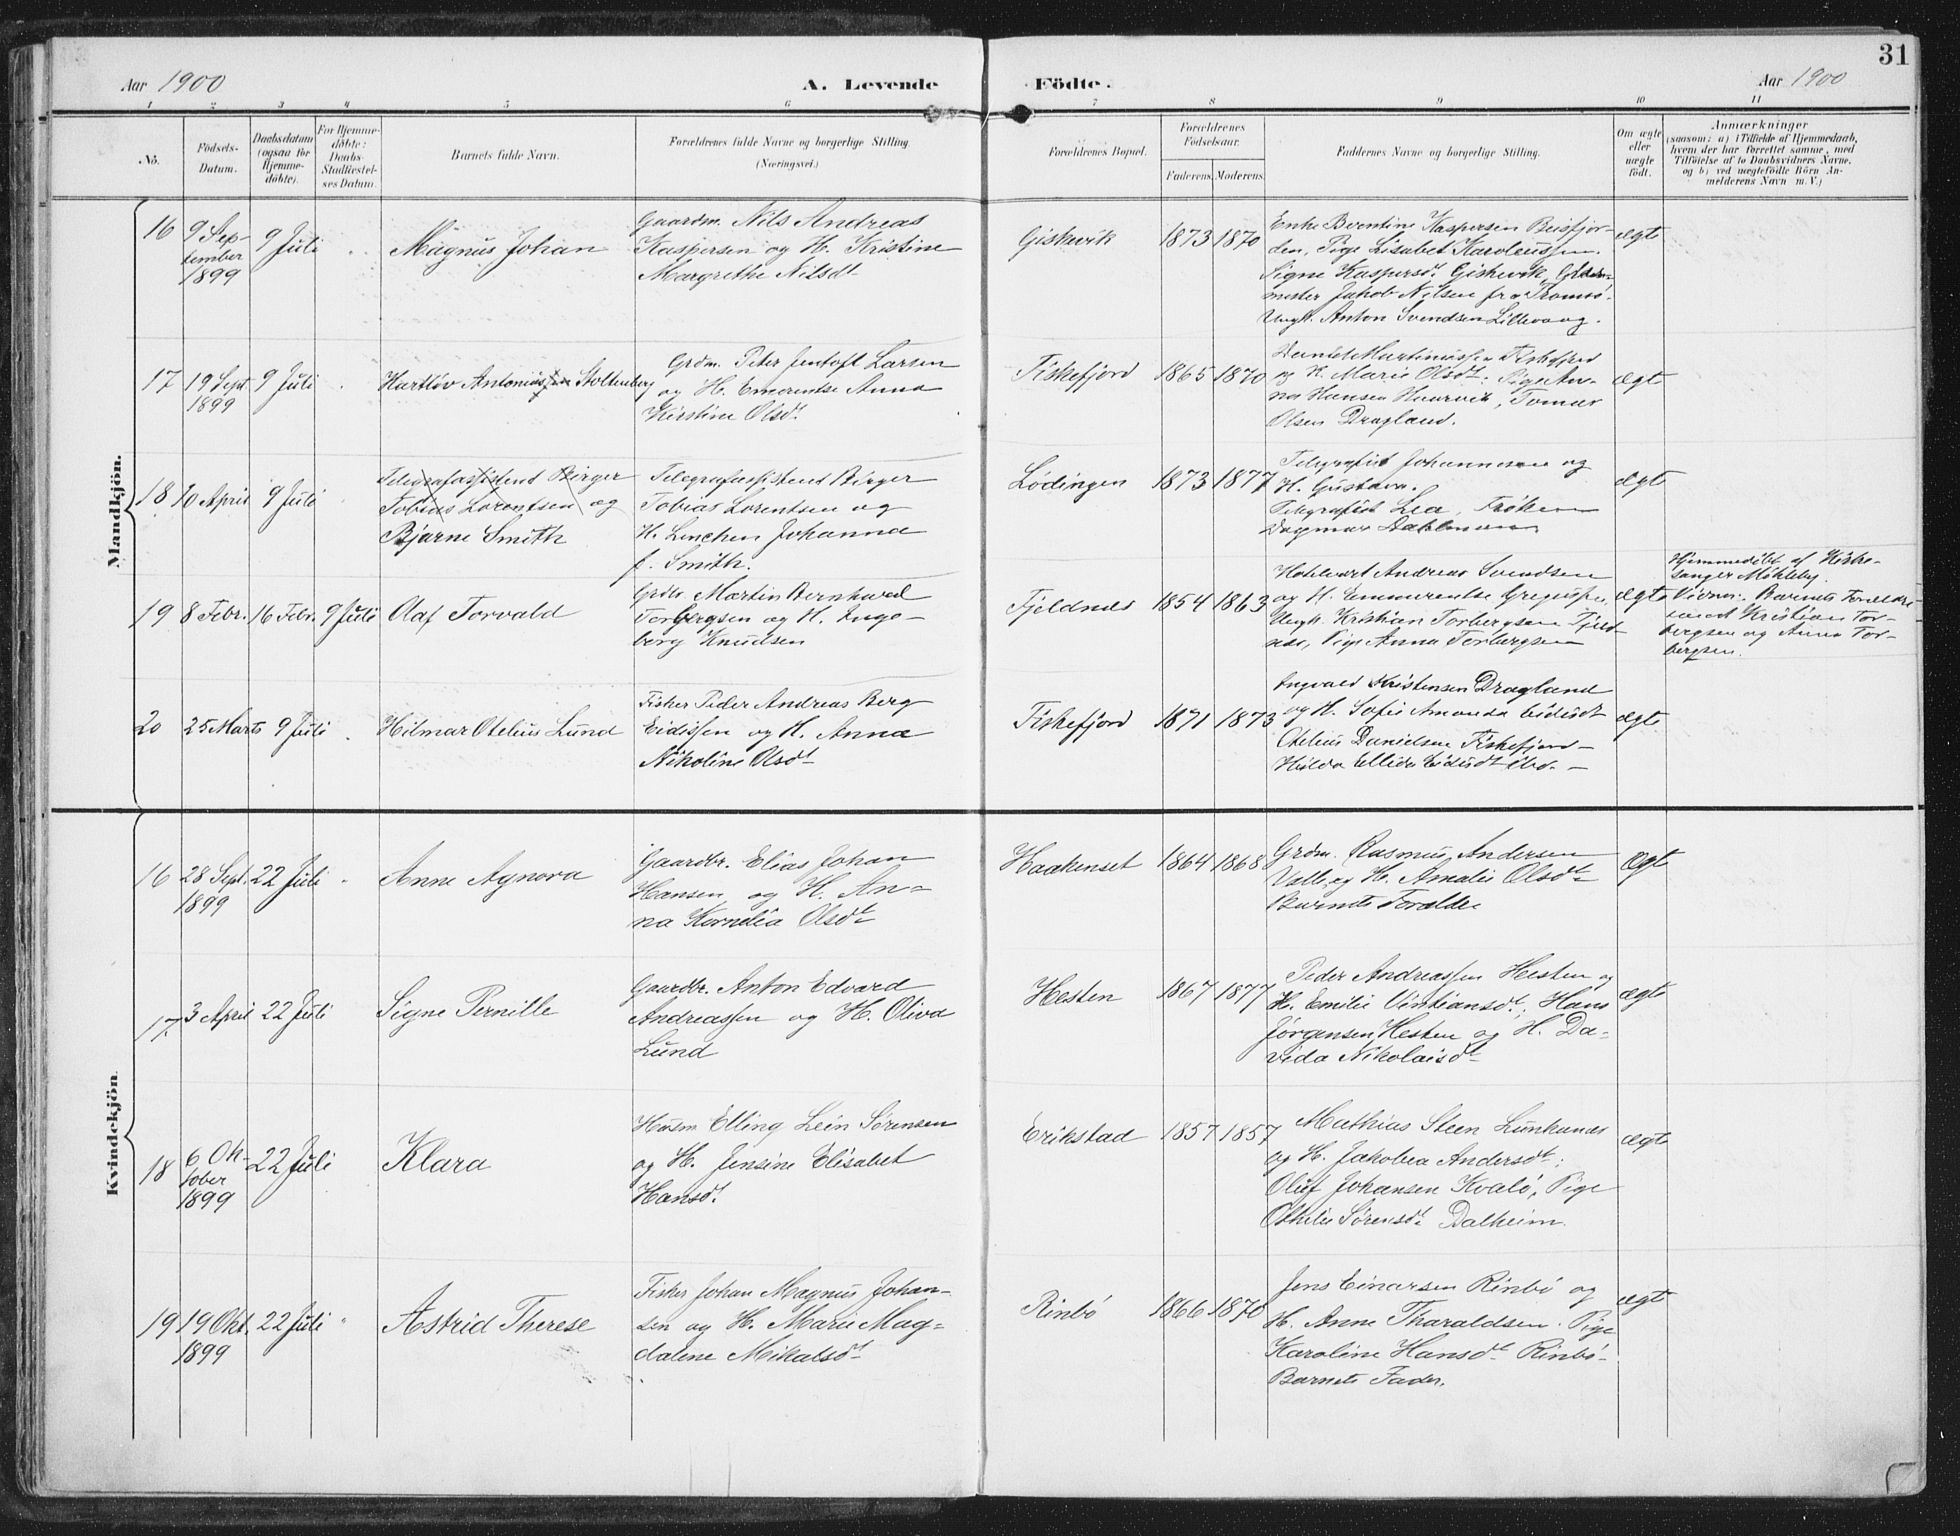 31
Aar 1900
A. Levende
Födte.
Aar 1900
1 2 3 4 5 6 7 8 9 10 11
No.
Födsels-
Datum.
Daabsdatum
(ogsaa for
Hjemme-
döbte).
For Hjemme-
döbte:
Daabs-
Stadfæstel-
ses Datum.
Barnets fulde Navn.
Forældrenes fulde Navne og borgerlige Stilling
(Næringsvei.)
Forældrenes Bopæl.
Forældrenes
Födselsaar.
Faderens. Moderens.
Faddernes Navne og borgerlige Stilling.
Om ægte
eller
uægte
födt.
Anmærkninger
(saasom: a) i Tilfælde af Hjemmedaab,
hvem der har forrettet samme, med
Tilföielse af to Daabsvidners Navne,
og b) ved uægtefödte Börn An-
melderens Navn m. V.)
Mandkjön.
16
9 Sep-
tember
1899
9 Juli
Magnus Johan
Gaardm. Nils Andreas
Kaspersen og H. Kristine
Margrethe Nilsdt
Giskevik
1873
1870
Enke Berntine Kaspersen Beisfjor-
den, Pige Lisabet Karoleussen.
Signe Kaspersdt. Giskevik,
mester Jakob Nilsen fra Tromsö.
Ungk. Anton Svendsen Lillevaag.
ægte
17
19 Sept
1899
9 Juli
Hartløv Antoniussen Stoltenberg
Grdm. Peter Jentoft Larsen
og H. Emerentse Anna
Kirstine Olsdt.
Fiskefjord
1865
1870
Daniel Martinussen Fiskefjord
og H. Marie Olsdt. Pige An-
na Hansen Haarvik, Tomas
Olsen Dragland.
ægte
18
10 April
9 Juli
Telegrafassistent Birger
Tobias Lorentsen og
Bjarne Smith
Telegrafassistend Birger
Tobias Lorentsen og
H. Linchen Johanna
f. Smith.
Lödingen
1873
1877
Telegrafist Johannesen og
H. Gustava.
Telegrafist Lea, Fröken
Dagmar Dahlmann
ægte
19
8 Febr.
16 Febr.
9 Juli
Olaf Torvald
Grdbr Martin Bernhard
Torbergsen og H. Inge-
borg Knudsen
Fjeldnes
1854
1863
Hotelvært Andreas Svendsen
og H. Emmerentse Gregersen,
Ungk. Kristian Torbergsen Fjeld-
nes, Pige Anna Torbergsen
ægte
Hjemmedöbt af Kirke-
sanger Möhleby.
Vidner: Barnets Foraldre
samt Kristian Tor-
bergsen og Anna Tor-
bergsen.
20
25 Marts
9 Juli
Hilmar Otelius Lund
Fisker Peder Andreas Berg
Eidissen og H. Anna
Nikoline Olsdt
Fiskefjord
1871
1873
Ingvald Kristensen Dragland
og H. Sofie Amanda Eidisdt
Otelius Danielsen Fiskefjord-
Hilda Ellida Eidisdt ibd. -
ægte
Kvindekjön.
16
28 Sept.
1899
22 Juli
Anne Agnora
Gaardbr. Elias Johan
Hansen og H. An-
na Kornelia Olsdt
Haakenset
1864
1868
Grdm. Rasmus Andersen
Valle og H. Amalie Olsdt
Barnets Foraldre
Ægt
17.
3 April
22 Juli
Signe Pernille
Gaardbr. Anton Edvard
Andreassen og H. Oliva
Lund
Hesten
1867
1877
Peder Andreassen Hesten og
H. Emilie Vintiansdt; Hans
Jørgensen Hesten og H. Da-
vida Nikolaisdt
ægte
18
6 Ok-
tober
1899
22 Juli
Klara
Husm Elling Lein Sørensen
og H. Jensine Elisabet
Hansdt.
Erikstad
1857
1857
Mathias Steen Lunkanes
og H. Jakobea Andersdt;
Oluf Johansen Kvalö, Pige
Othelie Sørensdt. Dalheim.
ægte
19
19 Okt.
1899
22 Juli
Astrid Therese
Fisker Johan Magnus Johan-
sen og H. Marie Mag-
dalene Mikalsdt
Rinbö
1866
1870
Jens Einarsen Rinbö og
H. Anne Tharaldsen. Pige
Karoline Hansdt Rinbö-
Barnets Fader.
ægte